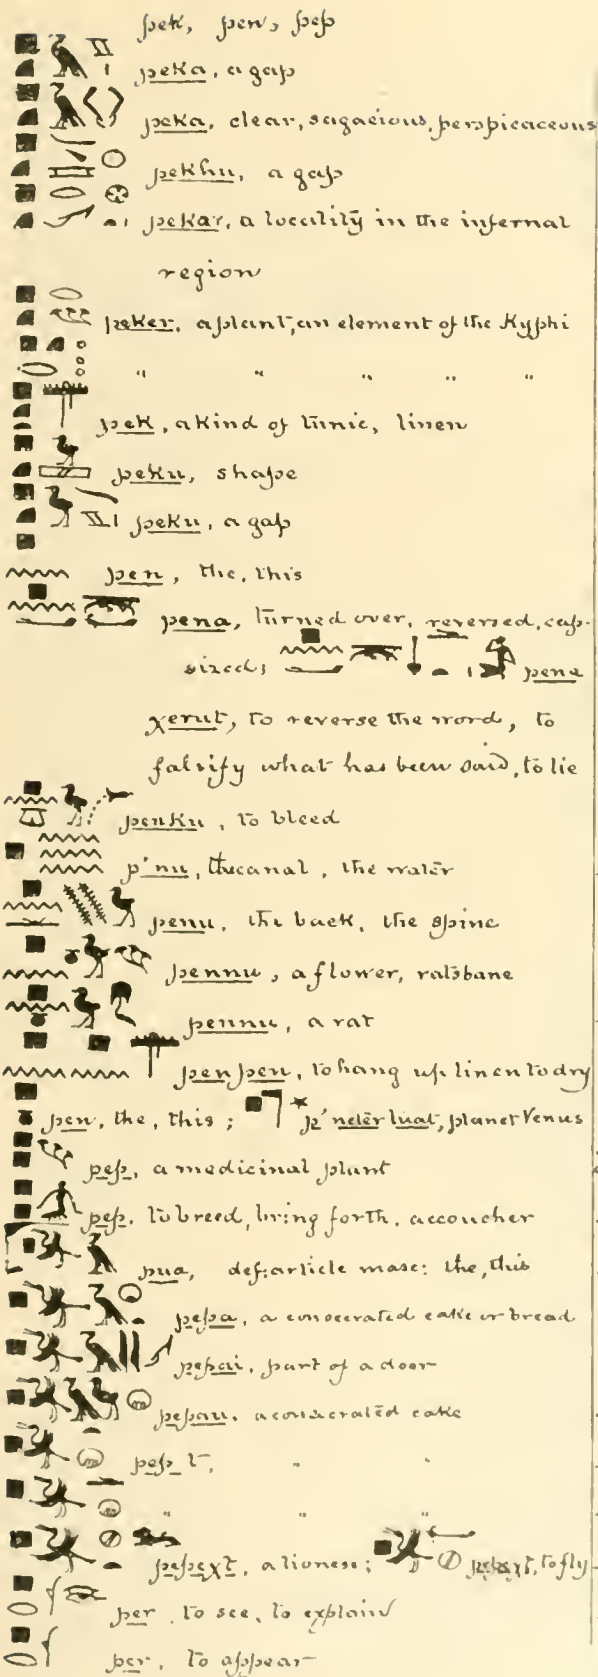 pek, pen, pep
peka, a gap
peka, clear, sagacious, perspicaceous
pekhu, a gap
pekar, a locality in the infernal
region
peker, a plant, an element of the Kyphi
" " " " "
pek, a kind of tunic, linen
peku, shape
peku, a gap
pen, the, this
pena, turned over, reversed, cap-
sized; pena
χerut, to reverse the word, to
falsify what has been said, to lie
penku, to bleed
p'nu, the canal, the water
penu, the back, the spine
pennu, a flower, ratsbane
pennu, a rat
penpen, to hang up linen to dry
pen, the, this; p'neter tuat, planet Venus
pep, a medicinal plant
pep, to breed, bring forth, accoucher
pua, def: article masc: the, this
pepa, a consecrated cake or bread
pepai, part of a door
pepau, a consecrated cake
pep_t, " "
" " "
pepeχt, a lioness; pepeχt, to fly
per, to see, to explain
per, to appear